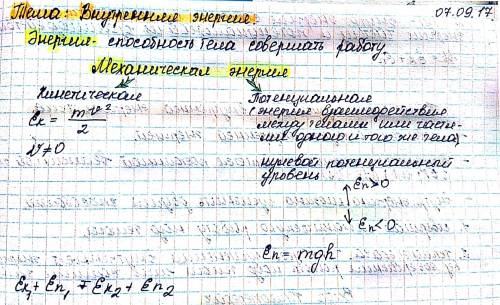 Тема: Внутренняя энергия. 07.09.17.
Энергия - способность тела совершать работу.
Механическая энергия
Кинетическая
Eк = mv²/2
v≠0
Потенциальная
(энергия взаимодействия
между телами или части-
ми одного и того же тела)
нулевой потенциальный
уровень
Eп>0
Eп<0
Eп = mgh
Eк₁ + Eп₁ = Eк₂ + Eп₂